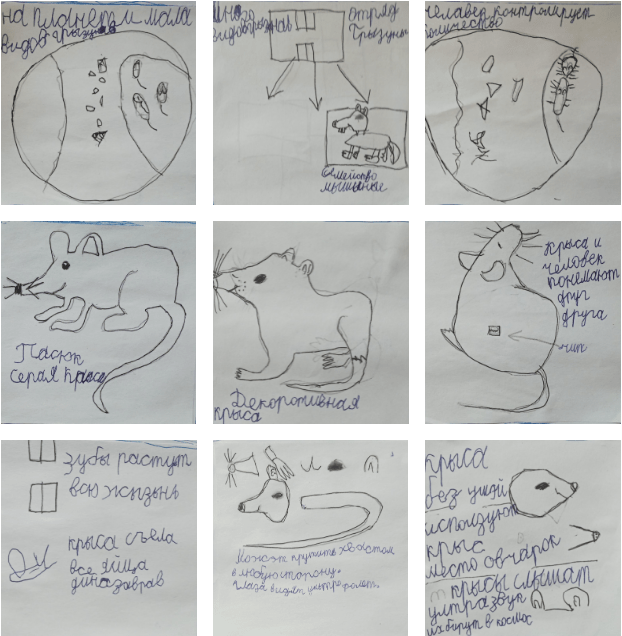 на планет и мала
видов грызунов
много
видообразная
отряд
Грызуны
семейство
мышыные
человек контролирует
количество
Пасюк
серая крыса
Декоротивная
крыса
Крыса и
человек
понемают
друг
друга
чип
зубы растут
всю жизынь
крыса съела
все яйца
диназаврав
Можэт крутить хвостом
в любую сторону.
глаза видят ультрофиолет.
крыса
без ушэй
используют
крыс
место овчарок
крысы слышат
ултразвук
их берут в космос